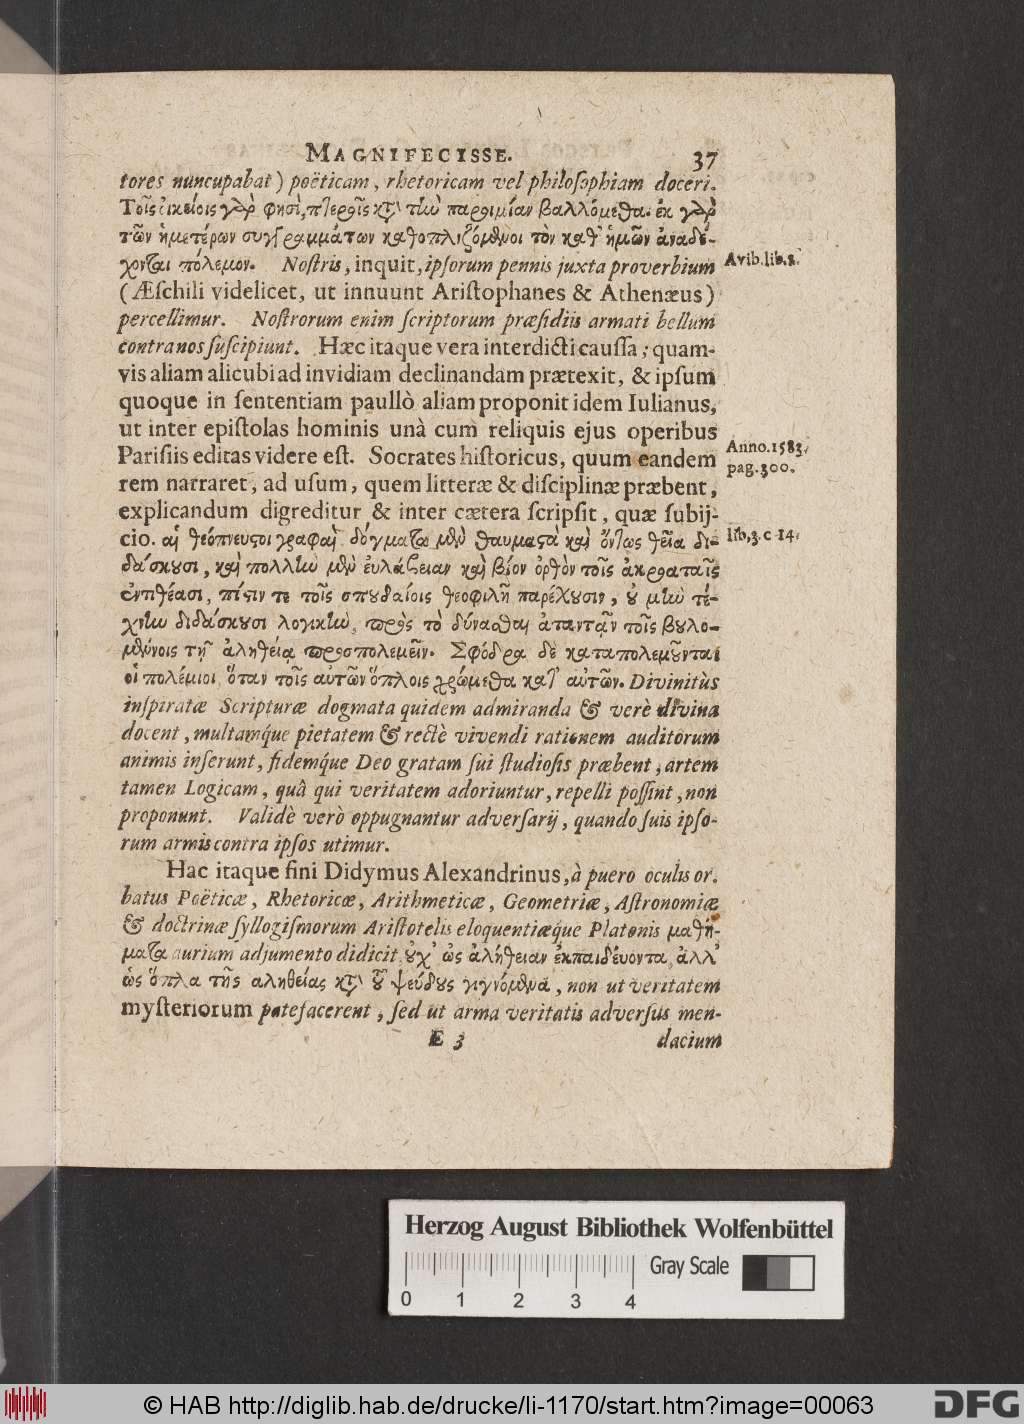 MAGNIFECISSE. 37
tores nuncupabat) poëticam, rhetoricam vel philoſophiam doceri.
Τοῖς οἰκείοις γὰρ φησὶ, πτεροῖς κτ τὴν παροιμίαν βαλλόμεθα. ἐκ γὰρ
τῶν ἡμετέρων συγγραμμάτων καθοπλιζόμενοι τὸν καθ᾽ ἡμῶν ἀναδέ-
χονται πόλεμον. Noſtris, inquit, ipſorum pennis juxta proverbium
Avib. lib. 2.
(Æſchili videlicet, ut innuunt Ariſtophanes & Athenæus)
percellimur. Noſtrorum enim ſcriptorum præſidiis armati bellum
contra nos ſuſcipiunt. Hæc itaque vera interdicti cauſſa; quam-
vis aliam alicubi ad invidiam declinandam prætexit, & ipſum
quoque in ſententiam paullò aliam proponit idem Iulianus,
ut inter epiſtolas hominis unà cum reliquis ejus operibus
Pariſiis editas videre eſt. Socrates hiſtoricus, quum eandem
Anno. 1583.
pag. 300.
rem narraret, ad uſum, quem litteræ & diſciplinæ præbent,
explicandum digreditur & inter cætera ſcripſit, quæ ſubij-
cio. αἱ θεόπνευστοι γραφαὶ δόγματα μὲν θαυμαστὰ καὶ ὄντως θεῖα δι-
lib. 3. c 14.
δάσκουσι, καὶ πολλὴν μὲν εὐλάβειαν καὶ βίον ὀρθὸν τοῖς ἀκροαταῖς
ἐντιθέασι, πίστιν τε τοῖς σπουδαίοις θεοφιλῆ παρέχουσιν, οὐ μὴν τέ-
χνην διδάσκουσι λογικὴν, πρὸς τὸ δύνασθαι ἀπαντᾷν τοῖς βουλο-
μένοις τῇ ἀληθείᾳ προσπολεμεῖν. Σφόδρα δὲ καταπολεμοῦνται
οἱ πολέμιοι, ὅταν τοῖς αὐτῶν ὅπλοις χρώμεθα κατ᾽ αὐτῶν. Divinitùs
inſpiratæ Scripturæ dogmata quidem admiranda & verè divina
docent, multamq́ue pietatem & rectè vivendi rationem auditorum
animis inſerunt, fidemq́ue Deo gratam ſui ſtudioſis præbent, artem
tamen Logicam, quâ qui veritatem adoriuntur, repelli poſſint, non
proponunt. Validè verò oppugnantur adverſarij, quando ſuis ipſo-
rum armis contra ipſos utimur.
Hac itaque fini Didymus Alexandrinus, à puero oculis or.
batus Poëticæ, Rhetoricæ, Arithmeticæ, Geometriæ, Aſtronomiæ
& doctrinæ ſyllogiſmorum Ariſtotelis eloquentiæque Platonis μαθή-
ματα aurium adjumento didicit, οὐχ᾽ ὡς ἀλήθειαν ἐκπαιδεύοντα, ἀλλ᾽
ὡς ὅπλα τῆς αληθείας κτ τοῦ ψεύδους γιγνόμενα, non ut veritatem
myſteriorum patefacerent, ſed ut arma veritatis adverſus men-
E 3 dacium
Herzog August Bibliothek Wolfenbüttel
Gray Scale
0 1 2 3 4
© HAB http://diglib.hab.de/drucke/li-1170/start.htm?image=00063
DFG